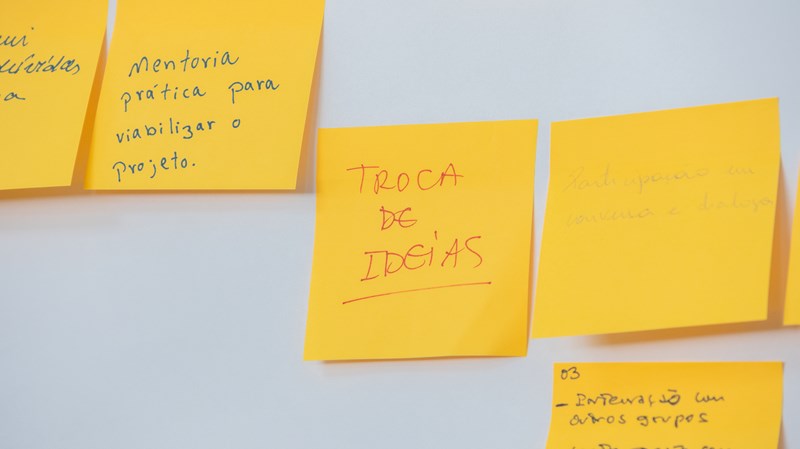 Mentoria
prática para
viabilizar o
projeto.
TROCA
DE
IDEIAS
Participação em
conversa e
03
- Integração com
outros grupos